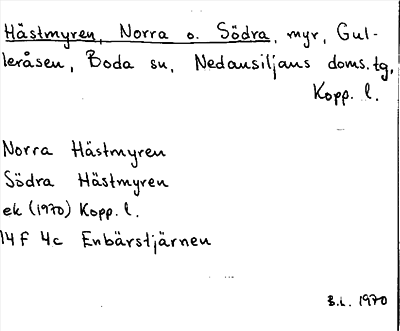 Hästmyren, Norra o. Södra, myr, Gul-
leråsen, Boda sn, Nedansiljans doms.tg,
Kopp. l.
Norra Hästmyren
Södra Hästmyren
ek (1970) Kopp. l.
14 F 4c Enbärstjärnen
B.L. 1970